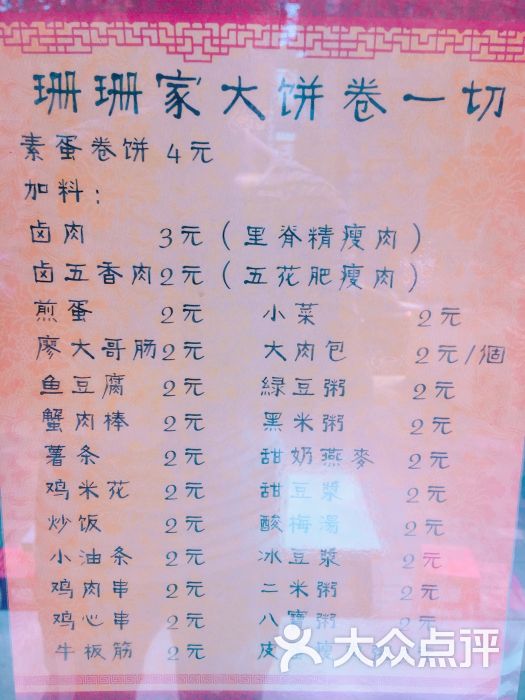 珊珊家大饼卷一切
素蛋卷饼 4元
加料：
卤肉 3元（里脊精瘦肉）
卤五香肉 2元（五花肥瘦肉）
煎蛋 2元 小菜 2元
廖大哥肠 2元 大肉包 2元/個
鱼豆腐 2元 緑豆粥 2元
蟹肉棒 2元 黑米粥 2元
薯条 2元 甜奶燕麥 2元
鸡米花 2元 甜豆漿 2元
炒饭 2元 酸梅湯 2元
小油条 2元 冰豆漿 2元
鸡肉串 2元 二米粥 2元
鸡心串 2元 八寶粥 2元
牛板筋 2元 皮
大众点评